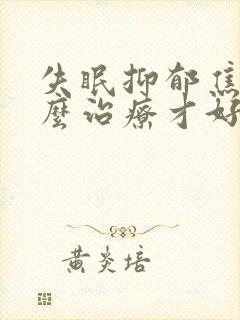 失眠抑郁焦
麼治療才好
黄炎培